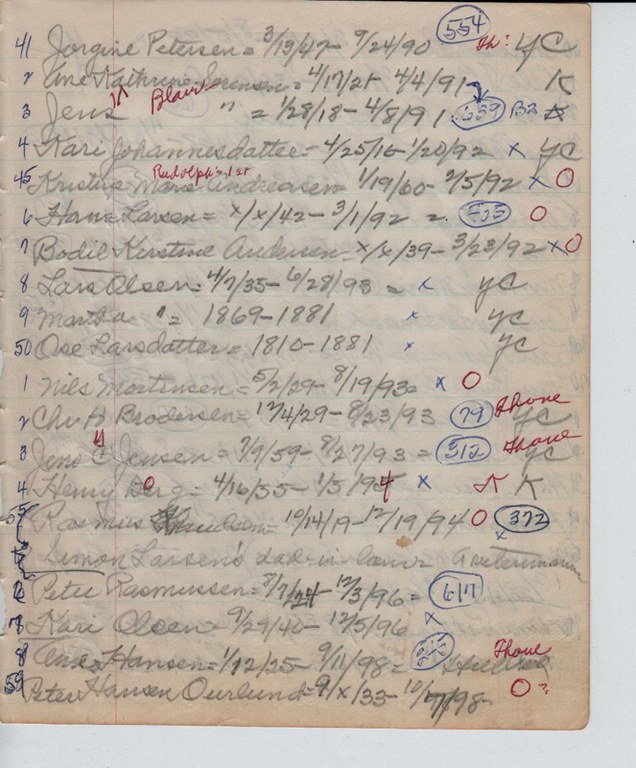 554
41 Jorgine Petersen = 3/13/47 - 9/24/90 Th: YC
2 Ane Kathrine Sorensen = 4/17/21 - 4/4/91 K
Blair
3 Jens K " = 1/28/18 - 4/8/91 639 B2
4 Kari Johannesdatter = 4/25/16 - 1/20/92 x YC
Rudolph's 1st
45 Kristine Marie Andreasen = 1/19/60 - 2/5/92 x O
6 Hans Larsen = x/x/42 - 3/1/92 = O
7 Bodil Kirstine Andersen = x/x/39 - 3/23/92 x O
8 Lars Olsen = 4/7/35 - 6/28/93 = x YC
9 Martha " = 1869 - 1881 x YC
50 Ose Larsdatter = 1810 - 1881 x YC
1 Nils Mortensen = 5/2/29 - 8/19/93 = x O
2 Chr H Brodersen = 12/4/29 - 8/23/93 79 Thone YC
3 Jens C Jensen = 7/9/59 - 8/27/93 = 312 Thone YC
4 Henry Berg = 4/16/55 - 1/5/94 x K K
55 Rasmus Knudsen = 10/14/19 - 12/19/94 O 372
x
Simon Larsen's dad-in-law
Peter Rasmussen = 8/7/24 - 12/3/96 = 617
Kari Olsen = 9/29/40 - 12/5/96 x
8 Ane Hansen = 1/12/25 - 9/11/98 = Thone
59 Peter Hansen Ourlund = 9/x/33 - 10/17/98 O ?